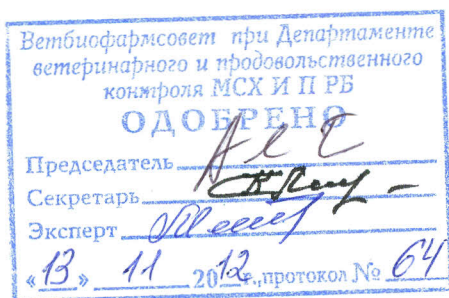 Ветбиофармсовет при Департаменте
ветеринарного и продовольственного
контроля МСХ И П РБ
ОДОБРЕНО
Председатель
Секретарь
Эксперт
«13» 11 2012 г., протокол № 64